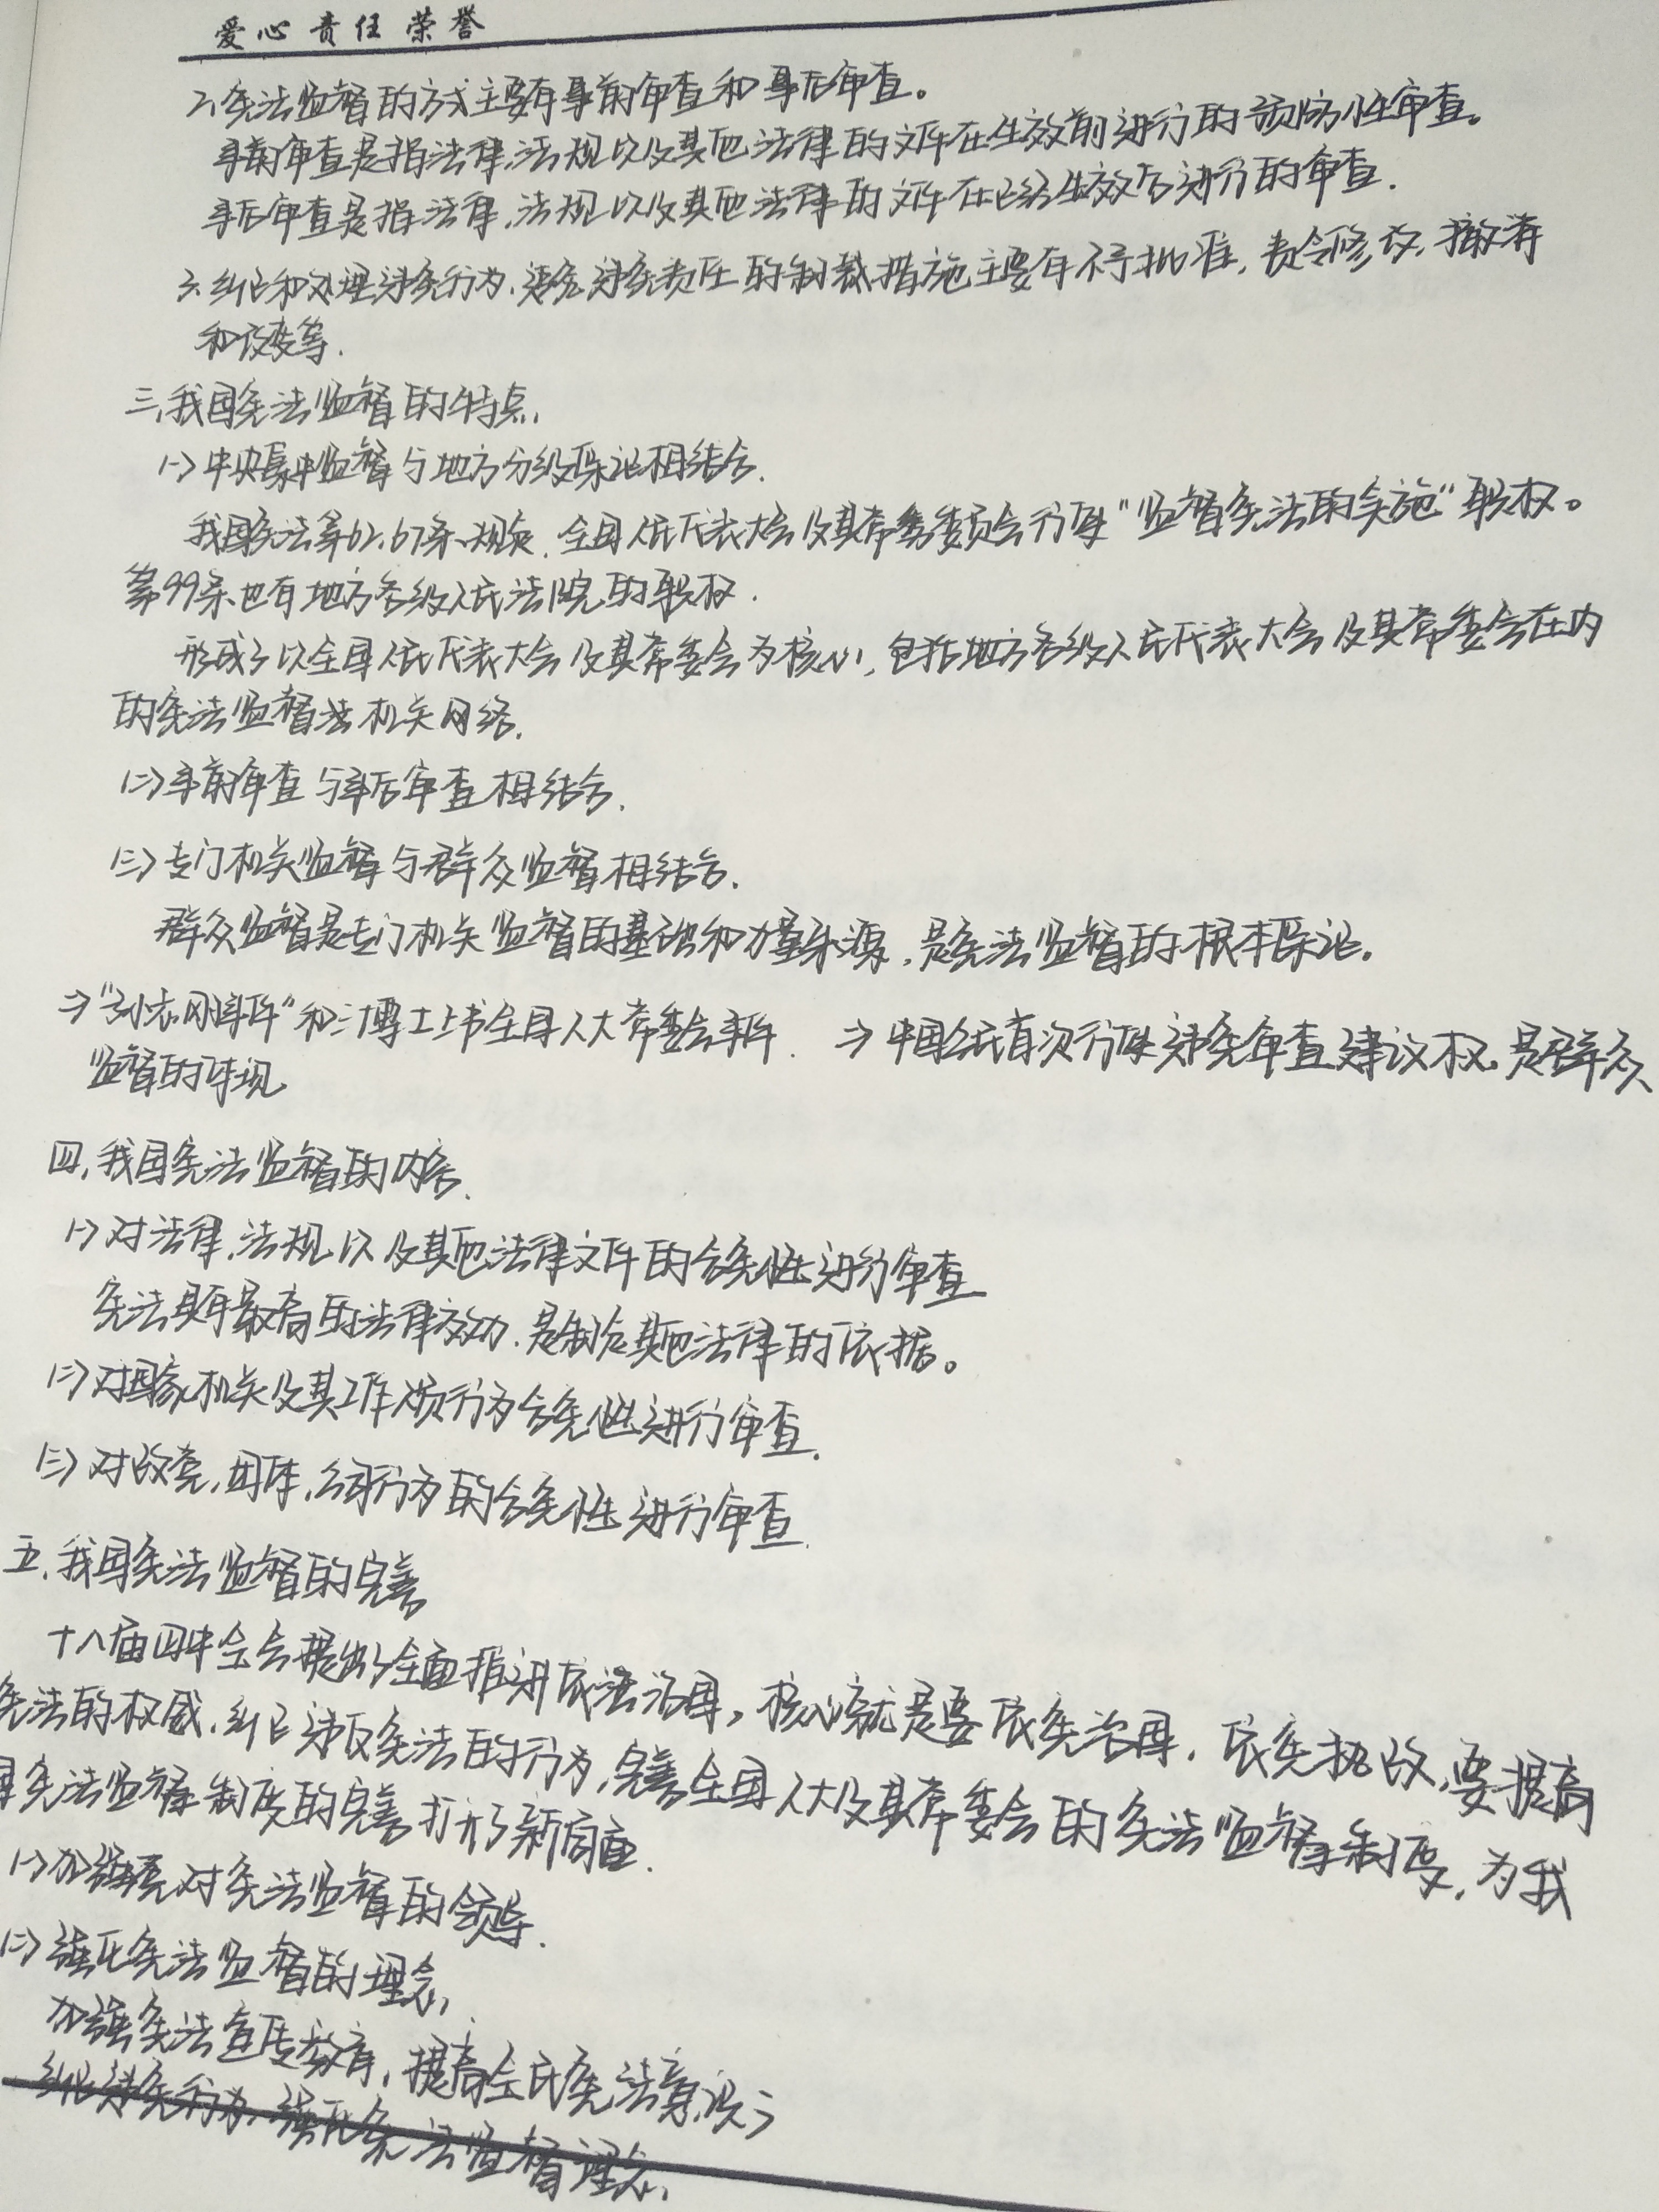 爱心 责任 荣誉
2、宪法监督的方式主要有事前审查和事后审查。
事前审查是指法律、法规以及其他法律的文件在生效前进行的预防性审查。
事后审查是指法律、法规以及其他法律的文件在已经生效后进行的审查.
3、纠正和处理违宪行为、追究违宪责任的制裁措施主要有不予批准,责令修改,撤销
和改变等.
三、我国宪法监督的特点.
(一)中央集中监督与地方分级保证相结合.
我国宪法第62、67条规定,全国人民代表大会及其常务委员会行使"监督宪法的实施"职权。
第99条也有地方各级人民法院的职权.
形成了以全国人民代表大会及其常委会为核心,包括地方各级人民代表大会及其常委会在内
的宪法监督法机关网络.
(二)事前审查与事后审查相结合.
(三)专门机关监督与群众监督相结合.
群众监督是专门机关监督的基础和力量来源,是宪法监督的根本保证。
⇒"孙志刚事件"和三博士上书全国人大常委会事件. ⇒中国公民首次行使违宪审查建议权,是群众
监督的体现
四、我国宪法监督的内容.
(一)对法律、法规以及其他法律文件的合宪性进行审查
宪法具有最高的法律效力,是制定其他法律的依据。
(二)对国家机关及其工作人员行为合宪性进行审查.
(三)对政党,团体,公司行为的合宪性进行审查.
五、我国宪法监督的完善
十八届四中全会提出了全面推进依法治国,核心就是要依宪治国,依宪执政,要提高
宪法的权威,纠正违反宪法的行为,完善全国人大及其常委会的宪法监督制度,为我
国宪法监督制度的完善打开了新局面.
(一)加强党对宪法监督的领导.
(二)强化宪法监督的理念,
加强宪法宣传教育,提高全民宪法意识;
纠正违宪行为,强化宪法监督理念,